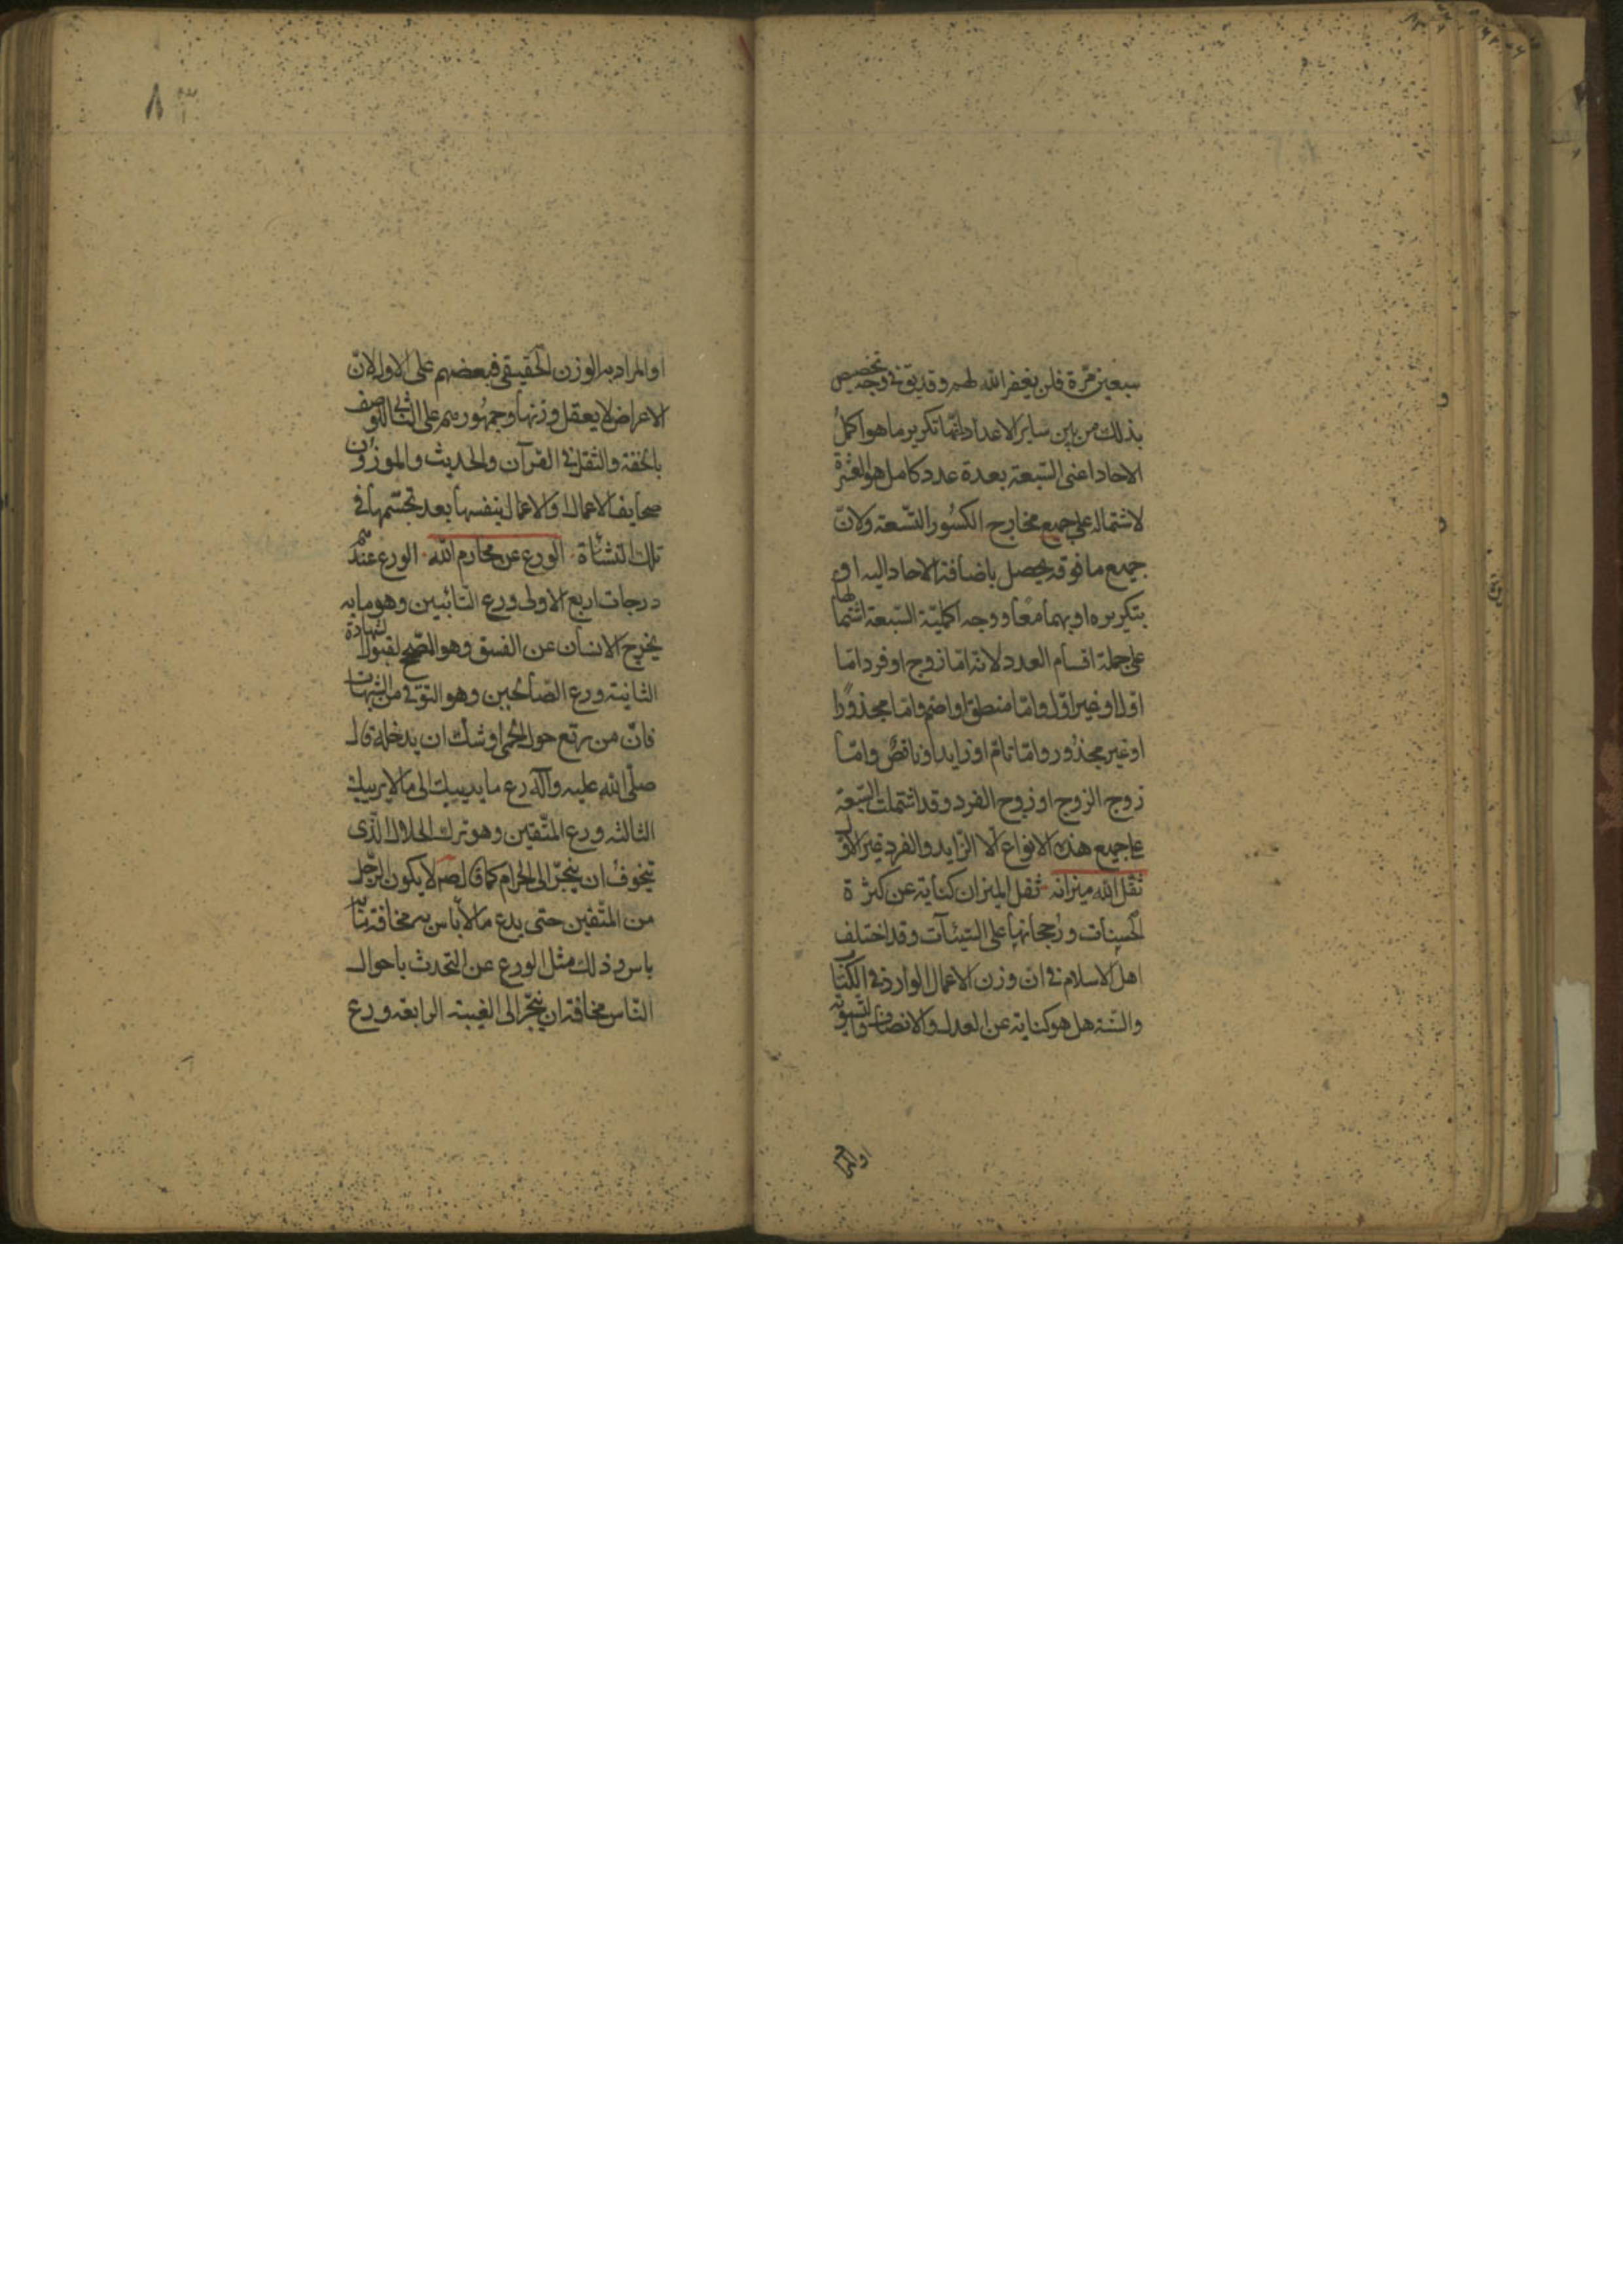 سبعین مرّة فلن یغفر الله لهم و قدیق فی وجه تخصیص
بذلک من بین سایر الاعداد انّما تکریر ما هو اکمل
الاحاد اعنی السّبعة بعدة عدد کامل هو العشرة
لاشتماله علی جمیع مخارج الکسور التّسعة ولان
جمیع ما فوقه یحصل باضافة الاحاد الیه او
بتکریره او بهما معًا و وجه اکملیّة السّبعة اشتمالها
علی جملة اقسام العدد لانه امّا زوج او فرد امّا
اوّل او غیر اوّل و امّا منطق او اصم و امّا مجذورًا
او غیر مجذور و امّا تام او زاید او ناقص و امّا
زوج الزوج او زوج الفرد و قد اشتملت السّبعة
علی جمیع هذه الانواع الّا الزّاید و الفرد غیر الاوّل
ثقّل الله میزانه ثقل المیزان کنایة عن کثرة
الحسنات و رجحانها علی السّیئآت و قد اختلف
اهل الاسلام فی ان وزن الاعمال الوارد فی الکتاب
والسّنة هل هو کنایة عن العدل والانصاف والتّسویة
او المرا
٨٣
او المراد به الوزن الحقیقی فبعضهم علی الاول لانّ
الاعراض لا یعقل وزنها و جمهورهم علی الثانی للوصف
بالخفة والثقل فی القرآن والحدیث والموزون
صحایف الاعمال او الاعمال بنفسها بعد تجسّمها فی
تلک النّشأة الورع عن محارم الله الورع عندهم
درجات اربع الاولی ورع التّائبین و هو ما به
یخرج الانسان عن الفسق و هو المصّحح لقبول الشهادة
الثانیة ورع الصّالحین و هو التوقی من الشبهات
فانّ من یرتع حول الحمی اوشک ان یدخله قال
صلّی الله علیه وآله دع ما یریبک الی ما لا یریبک
الثالثه ورع المتّقین و هو ترک الحلال الّذی
یتخوف ان ینجرّ الی الحرام کما قال صم لا یکون الرّجل
من المتّقین حتی یدع ما لا باس به مخافة ما به
باس و ذلک مثل الورع عن التحدث باحوال
النّاس مخافة ان ینجرّ الی الغیبة الرابعة ورع